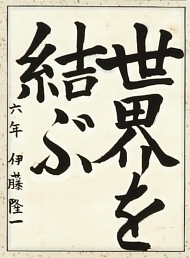 世界を
結ぶ
六年 伊藤隆一